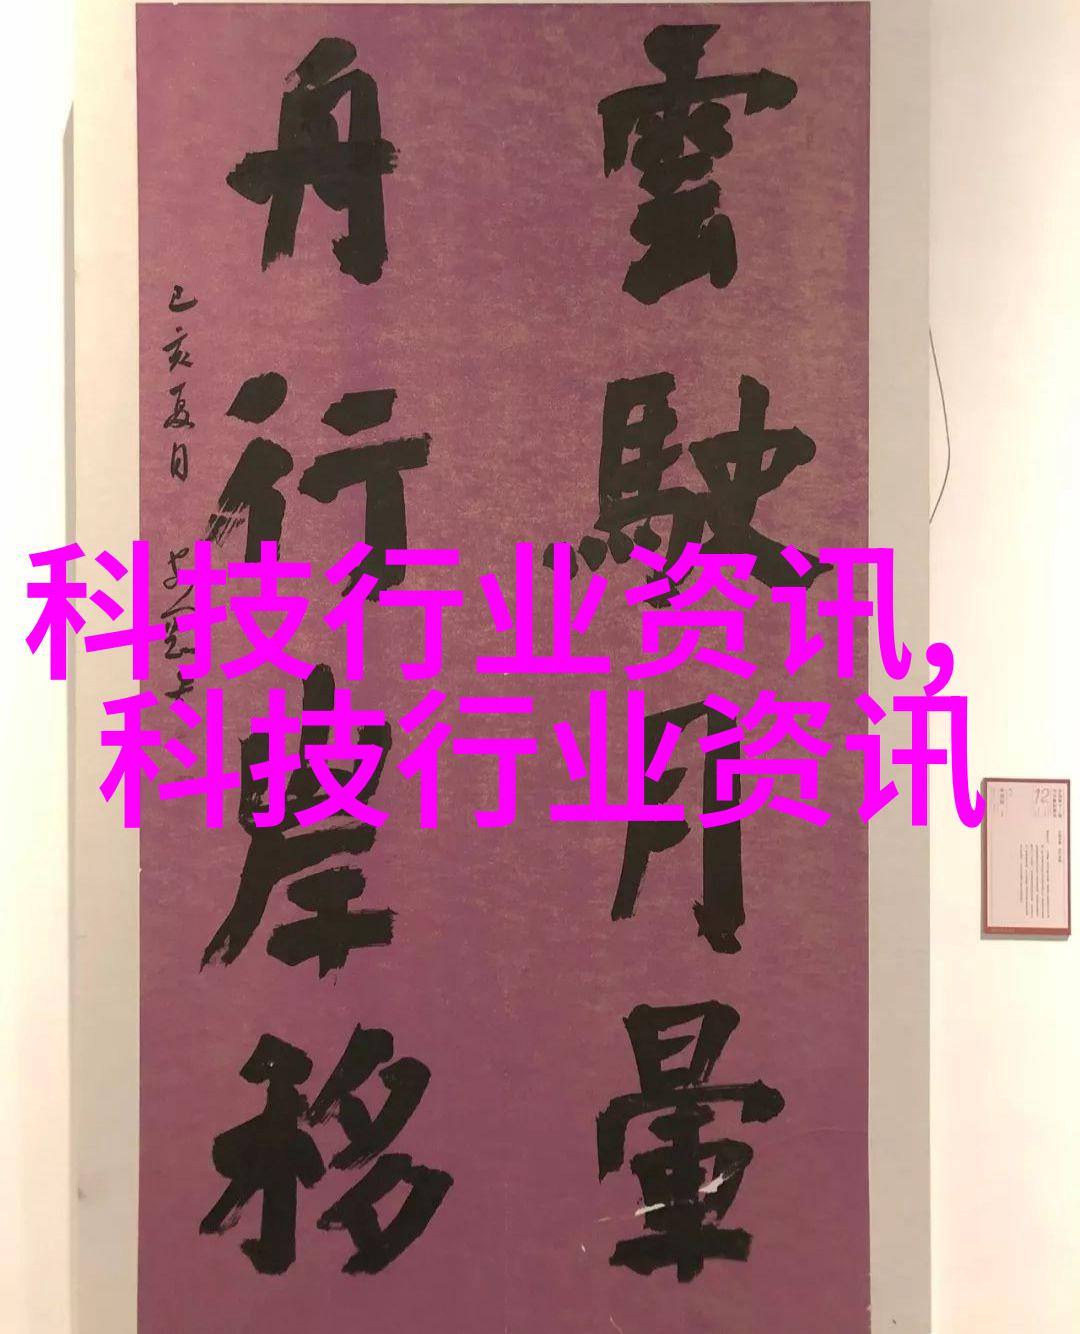 雲駛月暈
舟行岸移
己亥夏日
科技行业资讯,
科技行业资讯
12